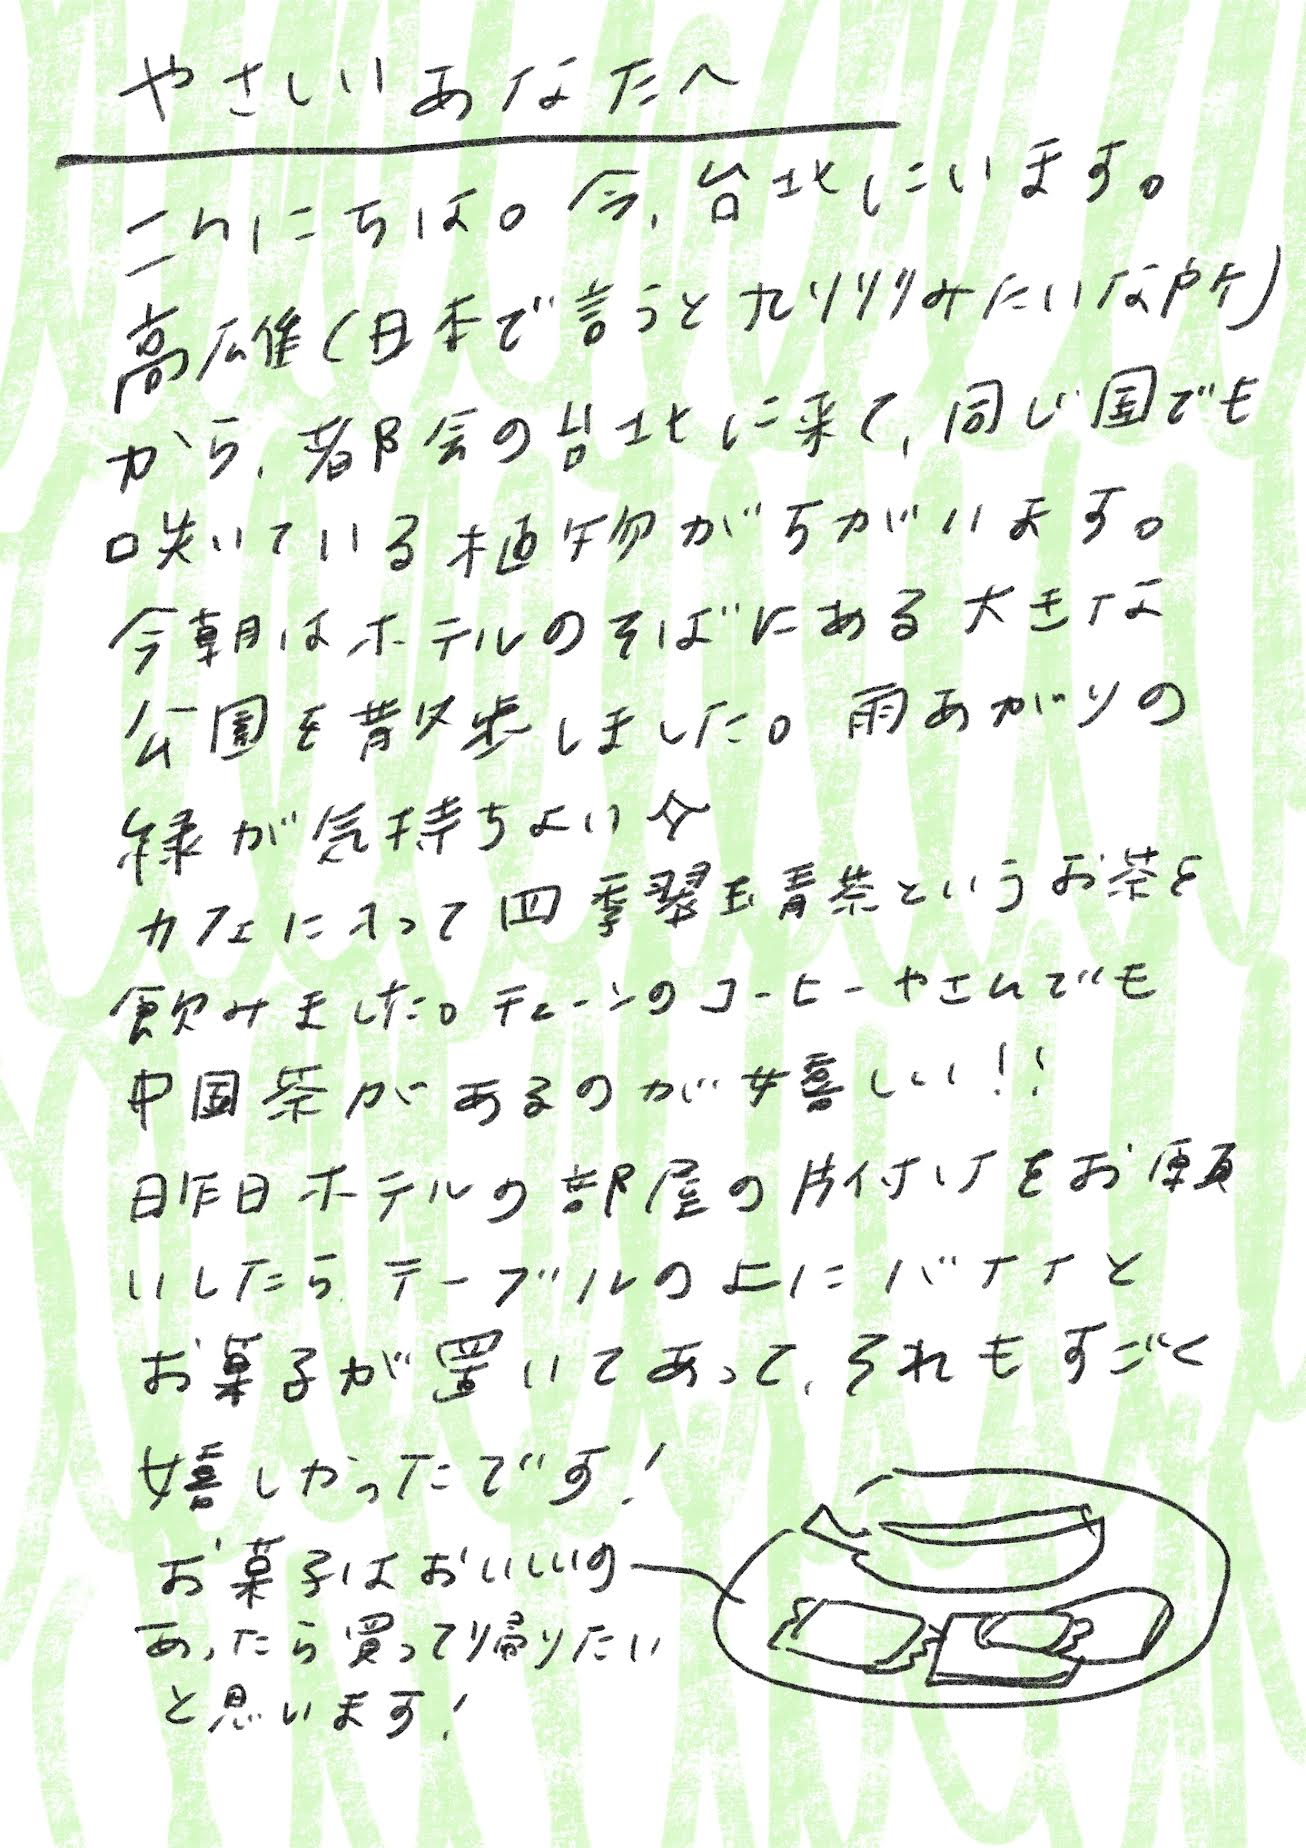 やさしいあなたへ
こんにちは。今、台北にいます。
高雄(日本で言うと九州みたいな所)
から、都会の台北に来て、同じ国でも
咲いている植物がちがいます。
今朝はホテルのそばにある大きな
公園を散歩しました。雨あがりの
緑が気持ちよい
カフェに入って四季翠玉青茶というお茶を
飲みました。チェーンのコーヒーやさんでも
中国茶があるのが嬉しい!!
昨日ホテルの部屋の片付けをお願
いしたらテーブルの上にバナナと
お菓子が置いてあって、それもすごく
嬉しかったです!
お菓子はおいしいの
あったら買って帰りたい
と思います!